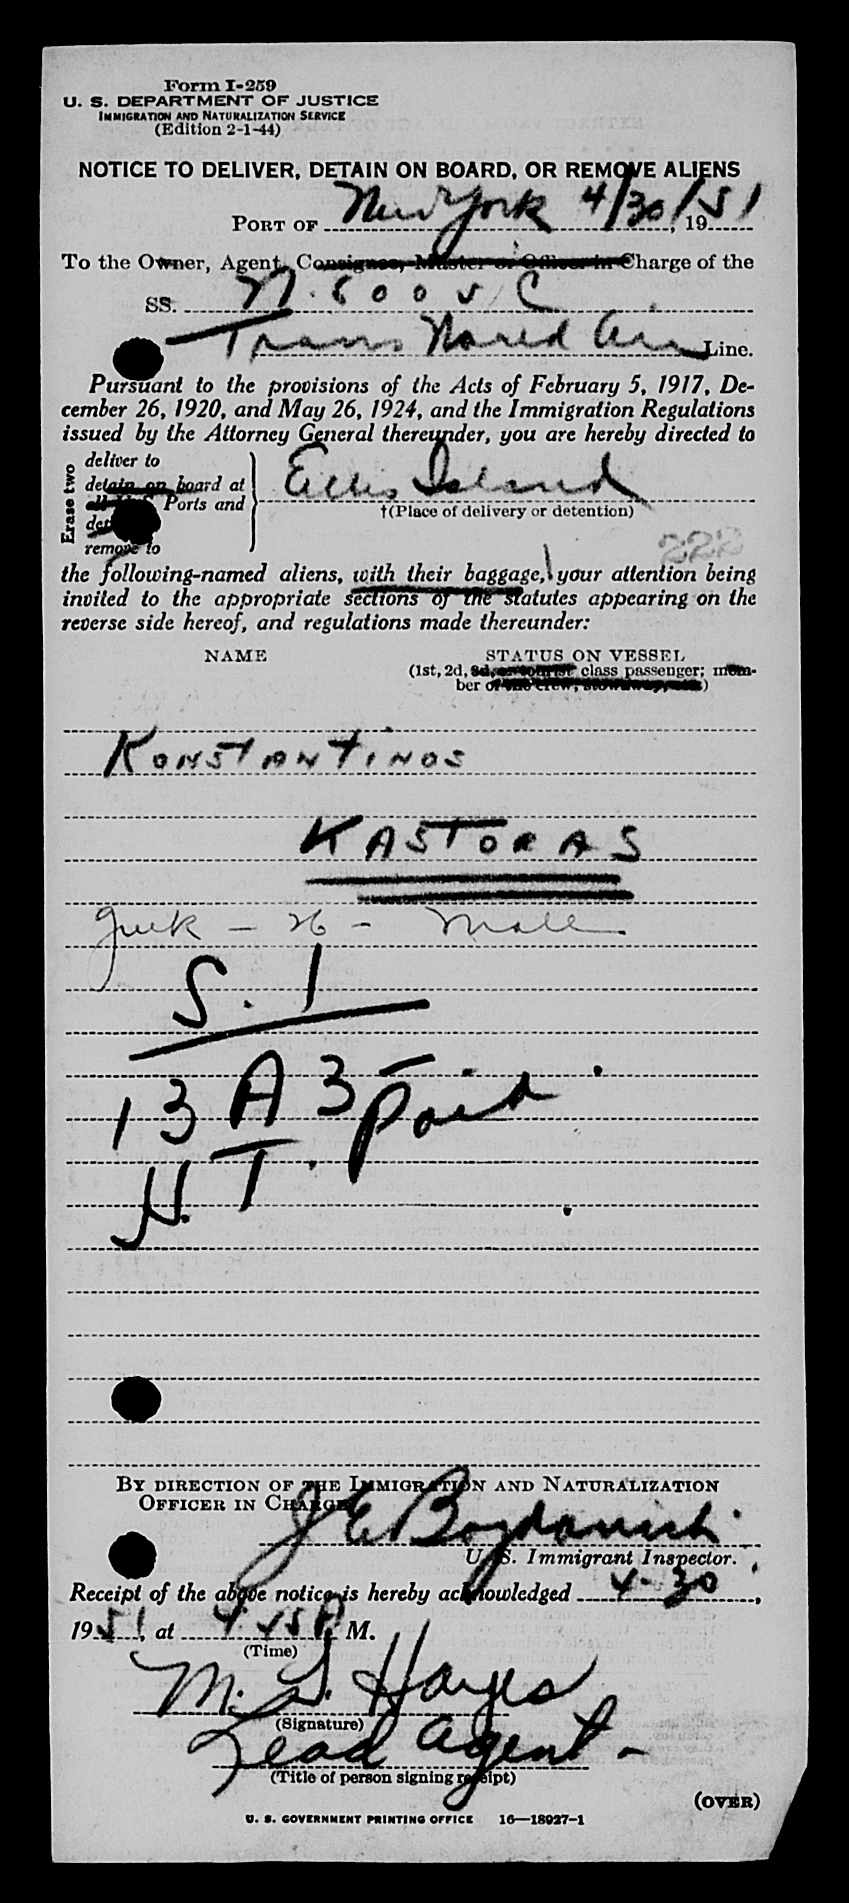 Form I-259
U. S. DEPARTMENT OF JUSTICE
IMMIGRATION AND NATURALIZATION SERVICE
(Edition 2-1-44)
NOTICE TO DELIVER, DETAIN ON BOARD, OR REMOVE ALIENS
PORT OF New York 4/30/, 1951
To the Owner, Agent, Consignee, Master or Officer in Charge of the
SS. N. 6005 C
Trans World Air Line.
Pursuant to the provisions of the Acts of February 5, 1917, De-
cember 26, 1920, and May 26, 1924, and the Immigration Regulations
issued by the Attorney General thereunder, you are hereby directed to
Erase two
deliver to
detain on board at
Ports and
remove to
Ellis Island
†(Place of delivery or detention)
222
the following-named aliens, with their baggage, your attention being
invited to the appropriate sections of the statutes appearing on the
reverse side hereof, and regulations made thereunder:
NAME STATUS ON VESSEL
(1st, 2d, 3d, or tourist class passenger; mem-
ber of the crew, stowaway, etc.)
KONSTANTINOS
KASTORAS
Greek - 26 - Male
S. 1
13 A 3 - Paid.
H. T.
BY DIRECTION OF THE IMMIGRATION AND NATURALIZATION
OFFICER IN CHARGE
J E Bogdanich
U. S. Immigrant Inspector.
Receipt of the above notice is hereby acknowledged 4-30,
1951, at 4.45 P. M.
(Time)
M. S. Hayes
(Signature)
Lead Agent -
(Title of person signing receipt)
(OVER)
U. S. GOVERNMENT PRINTING OFFICE 16—18927-1